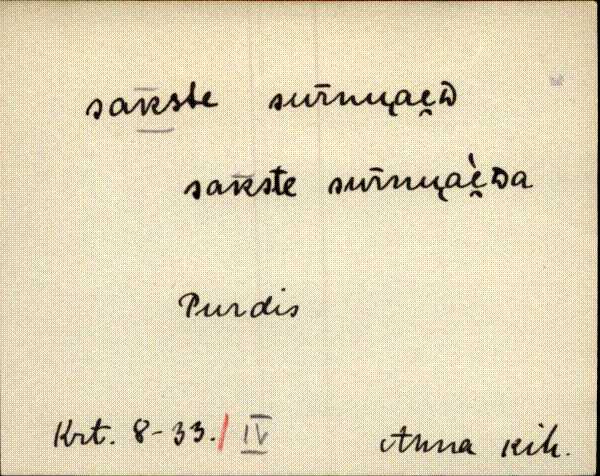 sak̄ste sur̄nu̯ae̯ᴅ
sak̄ste sur̄nu̯aè̯ᴅa
Purdis
Krt. 8-33./IV Anna kih.